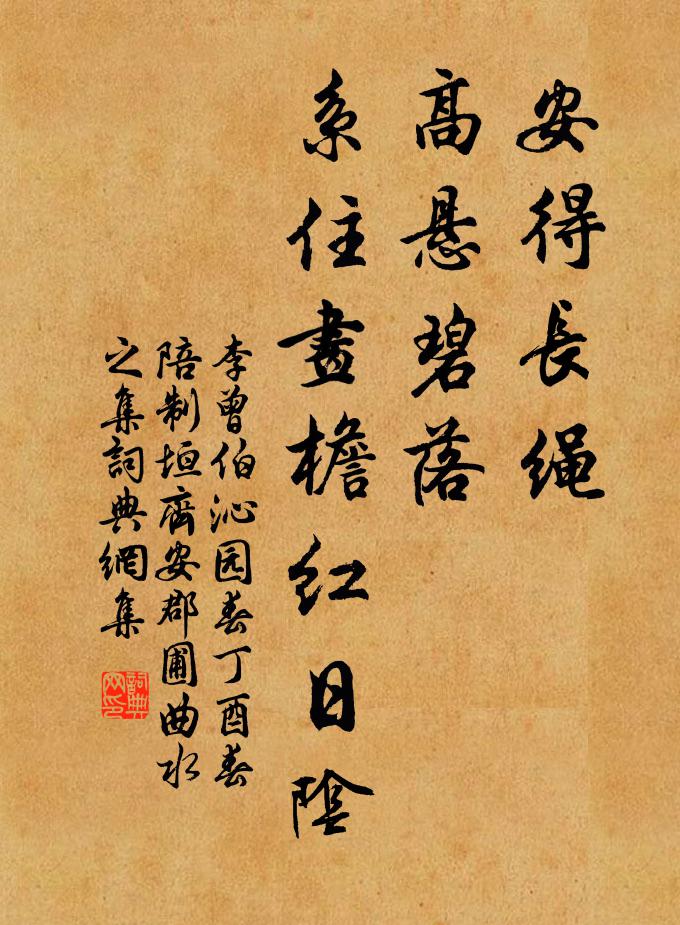 安得長绳
高悬碧落
系住畫檐红日陰
李曾伯沁园春丁酉春
陪制垣齊安郡圃曲水
之集詞典網集
詞典网印